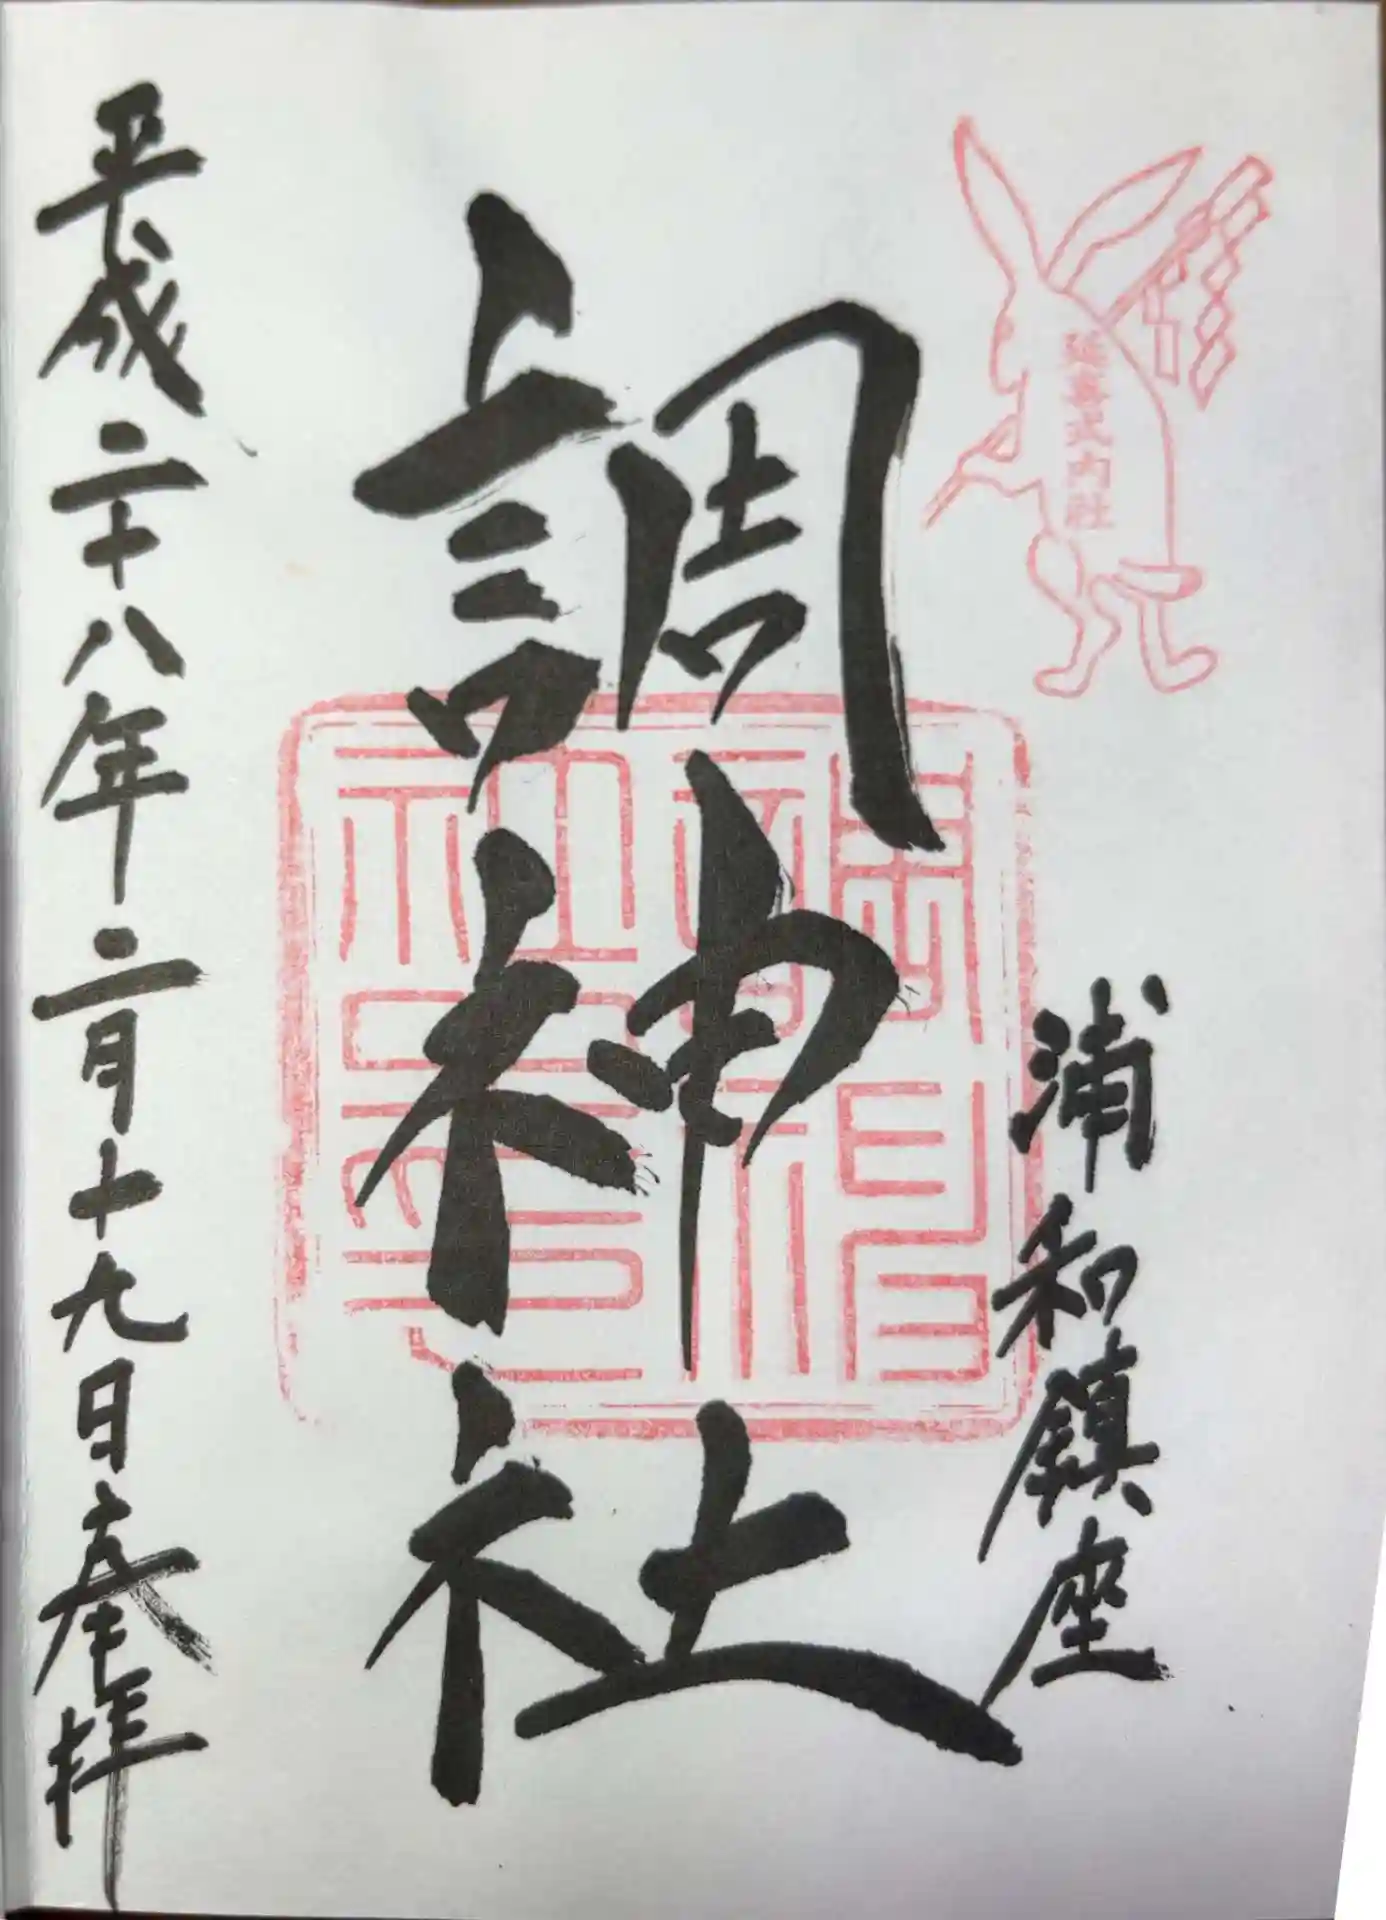 延喜式内社
浦和鎮座
調神社
平成二十八年二月十九日奉拝